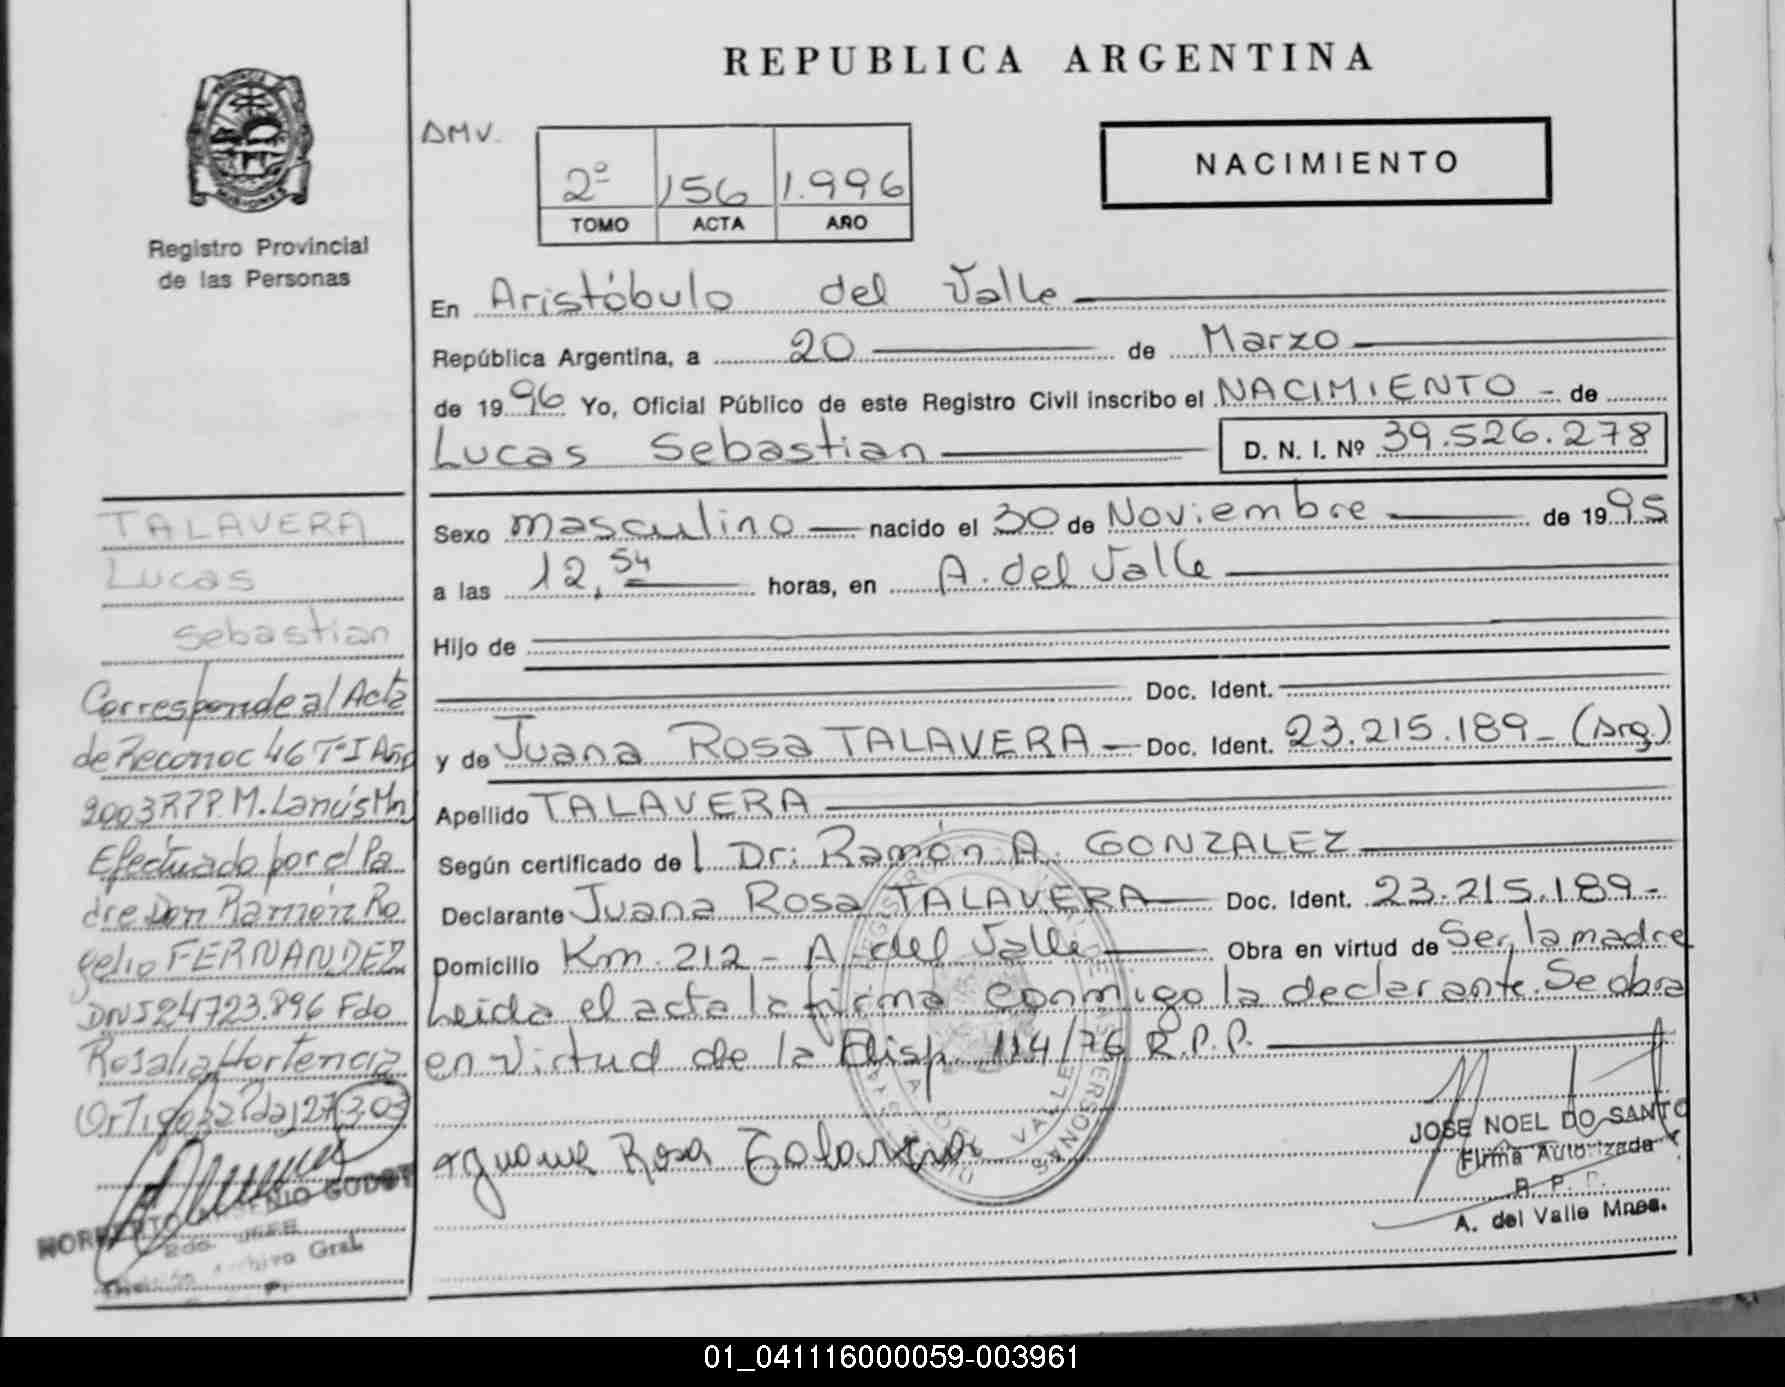 REPUBLICA ARGENTINA
DMV.
2º 156 1.996
TOMO ACTA AÑO
NACIMIENTO
Registro Provincial
de las Personas
En Aristóbulo del Valle
República Argentina, a 20 de Marzo
de 1996 Yo, Oficial Público de este Registro Civil inscribo el NACIMIENTO - de
Lucas Sebastian D. N. I. Nº 39.526.278
Sexo masculino nacido el 30 de Noviembre de 1995
a las 12,54 horas, en A. del Valle
Hijo de
Doc. Ident.
y de Juana Rosa TALAVERA Doc. Ident. 23.215.189 - (Arg.)
Apellido TALAVERA
Según certificado de l Dr: Ramón A. GONZALEZ
Declarante Juana Rosa TALAVERA Doc. Ident. 23.215.189-
Domicilio Km. 212 - A. del Valle Obra en virtud de Ser la madre
Leida el acta la firma conmigo la declarante. Se obra
en virtud de la Disp. 114/76 R.P.P.
JOSE NOEL DO SANTO
Firma Autorizada
R. P.
A. del Valle Mnes.
TALAVERA
Lucas
Sebastian
Corresponde al Acta
de Reconoc 46 Tº I Año
2003 RPP. M. Lanús Mn
Efectuado por el Pa
dre Don Ramón Ro
gelio FERNANDEZ
DNI 24723.896 Fdo
Rosalia Hortencia
Ortigoza Pda) 27.3.03
NORBERTO ARSENIO GODOY
JEFE
Archivo Gral.
Rosa Talavera
VALLE
01_041116000059-003961